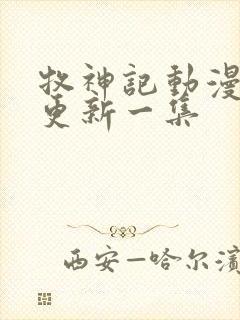 牧神記動漫
更新一集
西安—哈尔濱